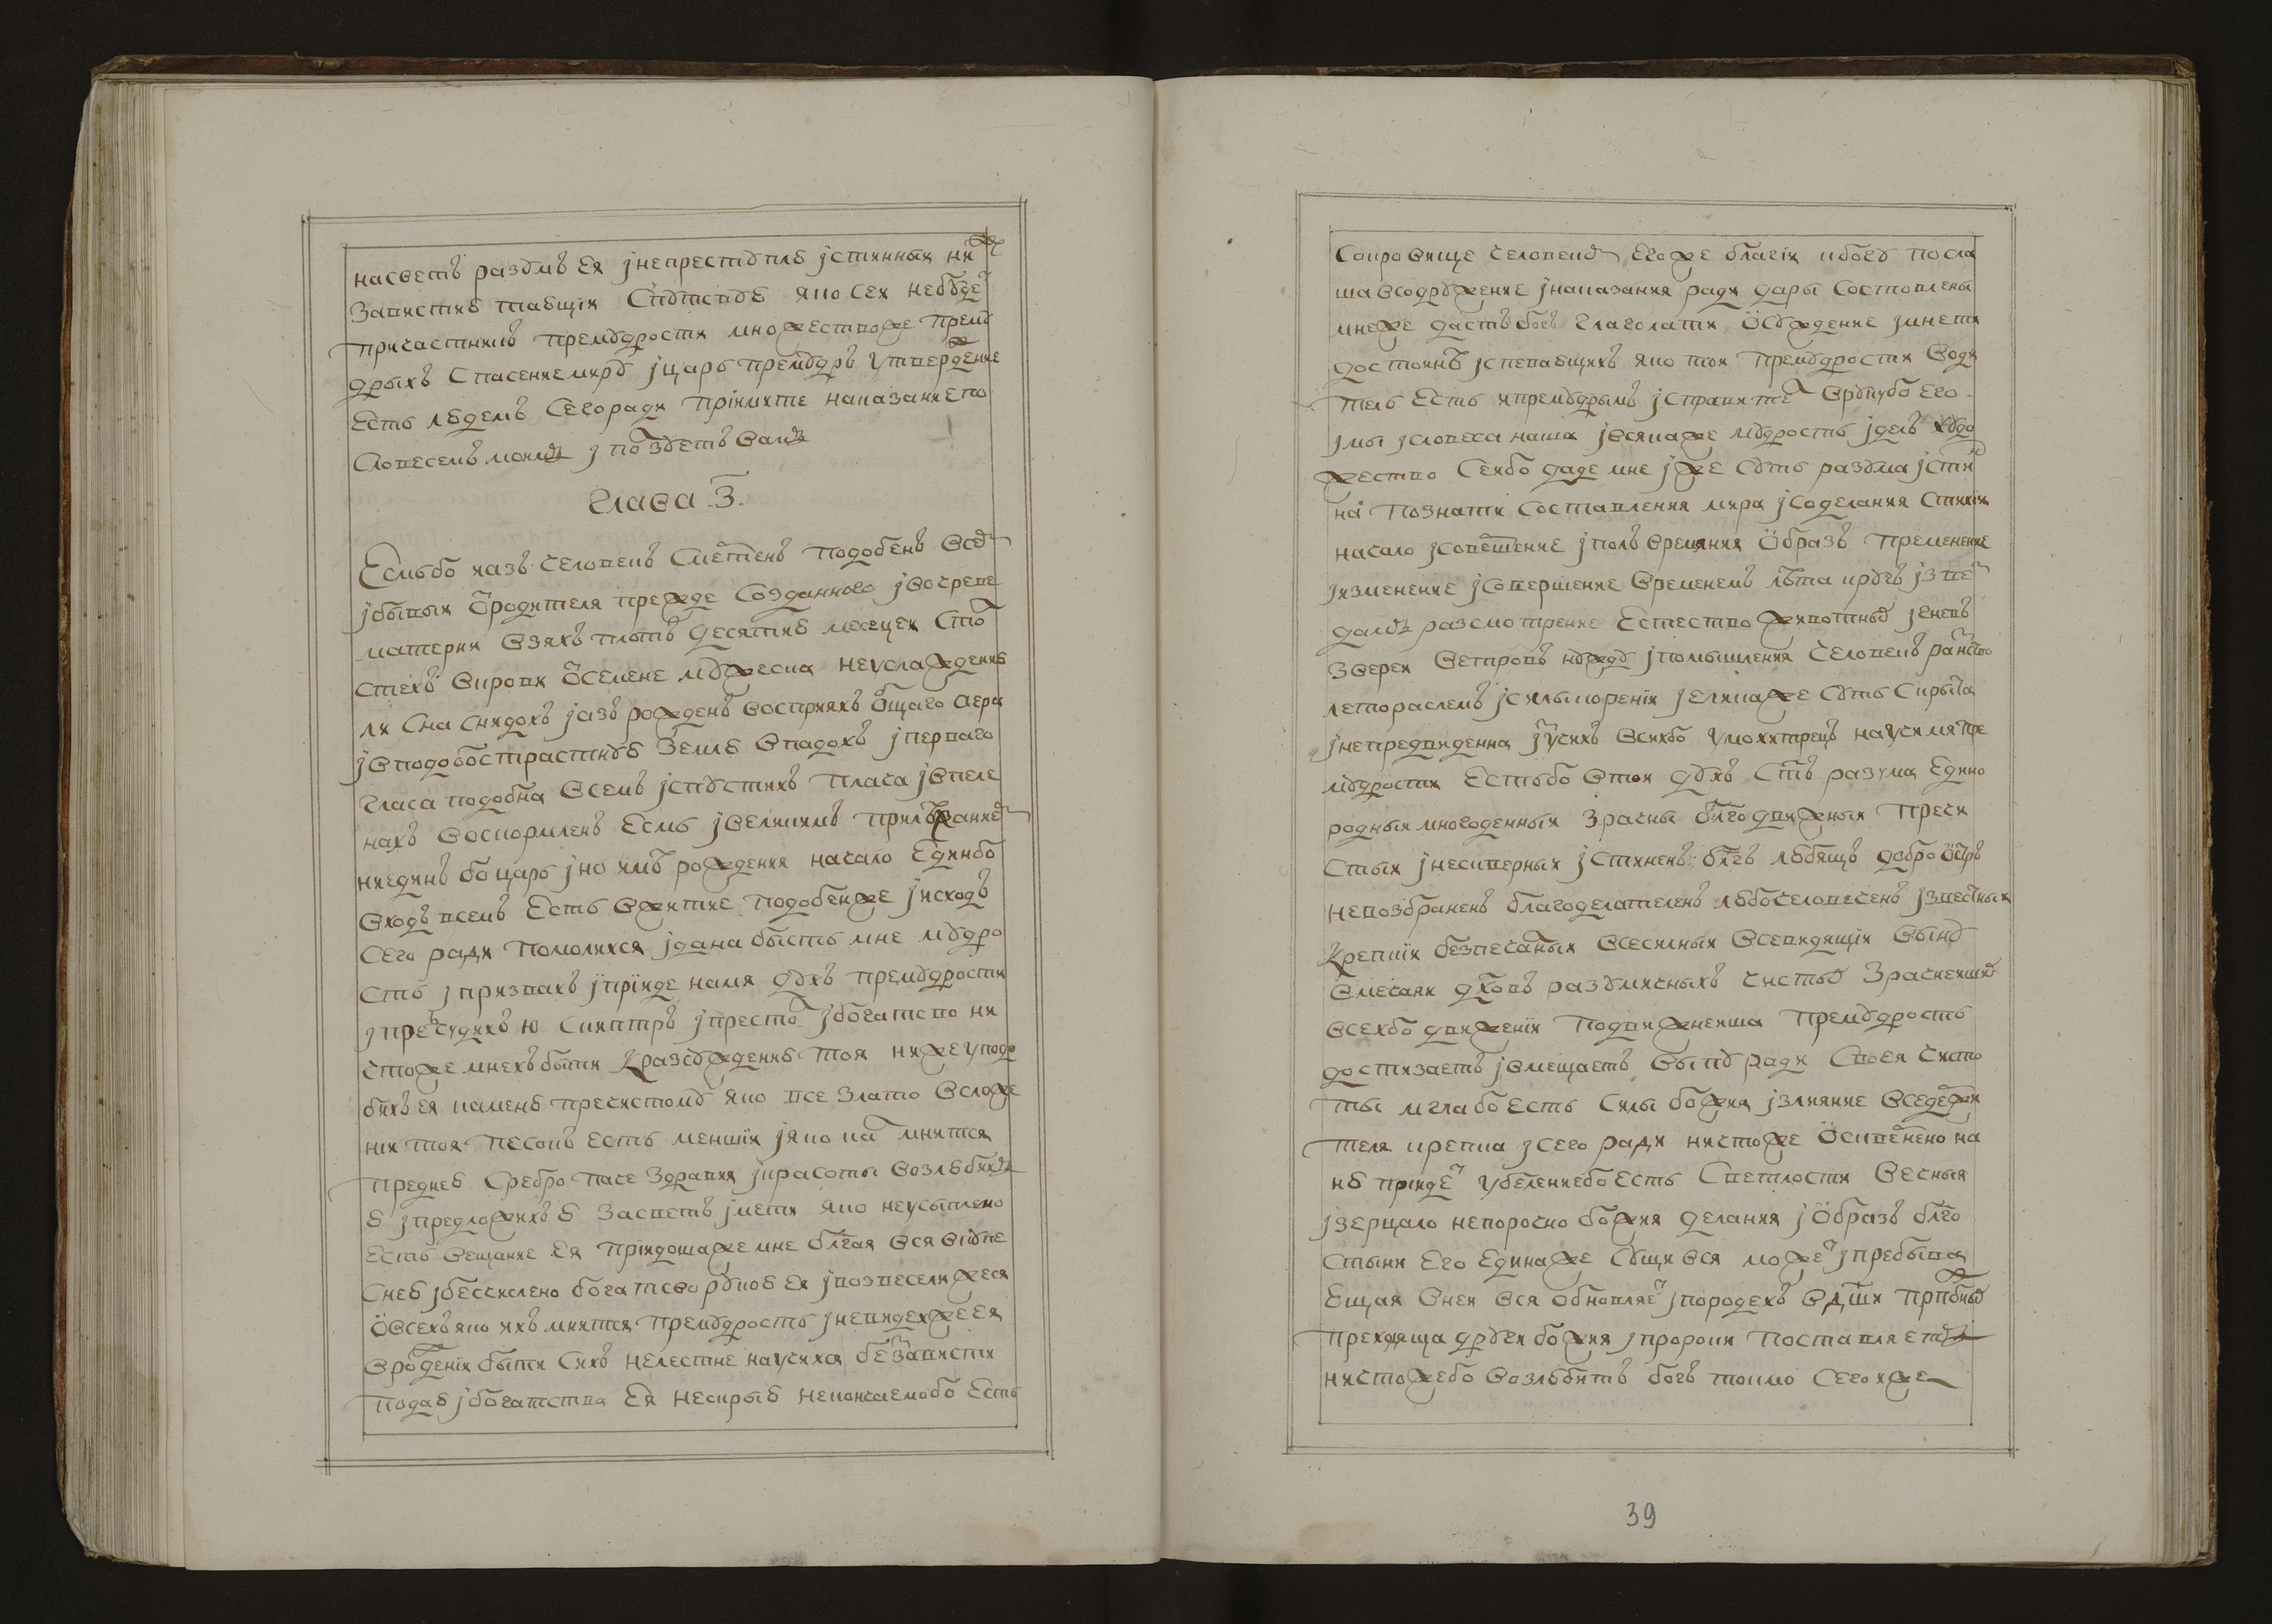 насветъ разꙋмъ ея јнепрестꙋплю јстинныи ниже
Завистию тающїи Спꙋтствꙋю яко сеи небꙋдет
причастникъ премꙋдрости множествоже премꙋ
дрыхъ Спасениемирꙋ јцарь премꙋдръ утвержение
Есть людемъ Сегоради прїимите наказание по
Словесемъ моимъ јползꙋетъ вамъ
Глава З.
Есмьбо иазъ человекъ смертенъ подобенъ всемъ
јбывыи ѿродителя прежде созданного јвочреве
матерни взяхъ плоть десятию месецеи Стол
стехъ вкрови ѿсемене мꙋжеска иуслаждению
ли сна снидохъ јазъ рожденъ восприяхъ общаго аера
јвподобострастнꙋю Землю впадохъ јперваго
гласа подобна всемъ јспꙋстихъ плача јвпеле
нахъ воскормленъ Есмь јвеликимъ прилѣжаниемъ
ниединъ бо царь јно имѣ рождения начало Единбо
входъ всемъ Есть вжитие подобенже јисходъ
Сего ради помолихся јдана бысть мне мꙋдро
сть јпризвахъ јприиде намя дꙋхъ премꙋдрости
јпредсудихъ ю Скиптръ јпрестол јбогатство ни
чтоже мнехъ быти Кразсꙋждению тоя нижеуподо
бихъ ея камению пречистомꙋ яко все злато всложе
нии тоя песокъ есть меншїи јяко кал мнится
предnею Сребро паче здравия јкрасоты возлюбихъ
ю јпредложихъ ю засветъ јмети яко неусыплено
есть вещание ея прїидошаже мне благая вся вкꙋпе
Снею јбесчислено богатсво рꙋкою ея јвозвеселихжеся
ѿвсехъ яко ихъ мнится премꙋдрость јневидехжеея
врождении быти Сихъ нелестне научихся беззависти
подаю јбогатства ея нескрыю некончаемобо Есть
Сокровище человекомъ Егоже благїи кбогꙋ посла
ша всодрꙋжение јнаказания ради дары составлены
мнеже дастъ богъ глаголати ѿсꙋждение јмнети
достоинѣ јспевающихъ яко тои премꙋдрости води
тель Есть ипремꙋдрымъ јсправитель Врꙋкубо Его
Јмы јсловеса наша јвсякаже мꙋдрость јделъ хꙋдо
жество Сеибо даде мне јже сꙋть разꙋма јстин
на Познати составления мира јсоделания стихии
начало јсовершение јполъ времяния ѿбразъ пременение
Јизменение јсовершение временемъ лѣта кругъ јзвез
дамъ разсмотрение Естество животныхъ јгневъ
зверей ветровъ нꙋждꙋ јпомышления человекъ разньство
леторослемъ јсилы корении јеликаже сꙋть Скрыта
јнепредвиденна јучихъ всихбо умохитрецъ научимяпре
мꙋдрости естьбо втои дꙋхъ Стъ разума Едино
родныи многоденныи Зрачны благодвижныи пречи
стыи јнескверныи јстиненъ блгъ любящъ добро ѿстръ
Невозбраненъ благодетеленъ любочеловеченъ јзвестныи
Крепкии безпечалныи всесилныи всевидящїи выну
Вмещаяи дховъ разꙋмичныхъ чистыхъ Зрачнеишихъ
всехбо движении подвижнеиша премꙋдрость
достизаетъ јвмещаетъ выну ради своея чисто
ты мглабо есть силы божия јзлияние вседержи
теля крепка јсего ради ничтоже ѿсквернено на
ню прїидет убелениебо есть светлости вечныя
јзерцало непорочно божия делания јѿбразъ благо
стыни Его единаже Сꙋщи вся может јпребыва
ющая внеи вся обновляет јпородехъ вдши прпбныхъ
преходяща дрꙋги божия јпророки поставляетъ
ничтожебо возлюбитъ богъ токмо Сегоиже
39